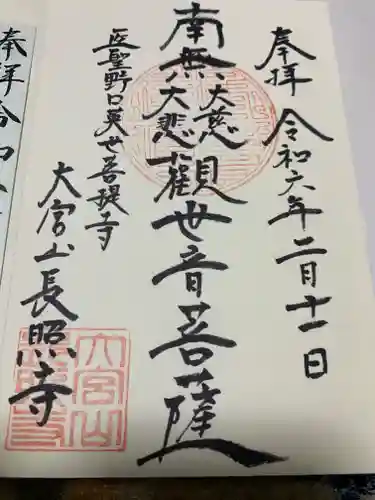 奉拝 令和六年二月十一日
南無大慈大悲観世音菩薩
医聖野口英世菩提寺
大宮山長照寺
奉拝 令和